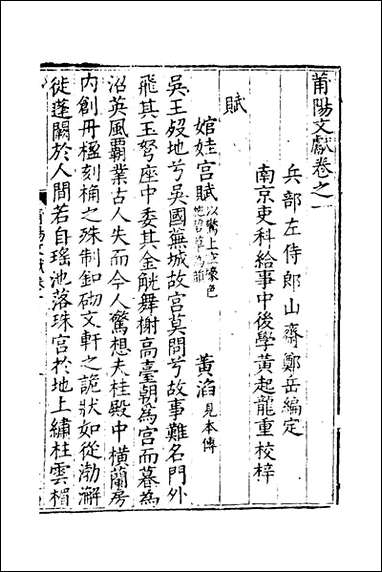 莆陽文獻卷之一
兵部左侍郎山齋鄭岳編定
南京吏科給事中後學黃起龍重校梓
賦
婠娃宮賦 以驚上空壕色 碧草為韻 黃滔 見本傳
吳王歿地兮吳國蕪城故宮莫問兮故事難名門外
飛其玉弩座中委其金觥舞榭高臺朝為宮而暮為
沼英風霸業古人失而今人驚想夫桂殿中橫蘭房
內創丹楹刻桷之殊制釦砌文軒之詭狀如從渤澥
徙蓬闕於人間若自瑤池落珠宮於地上繡柱雲楣